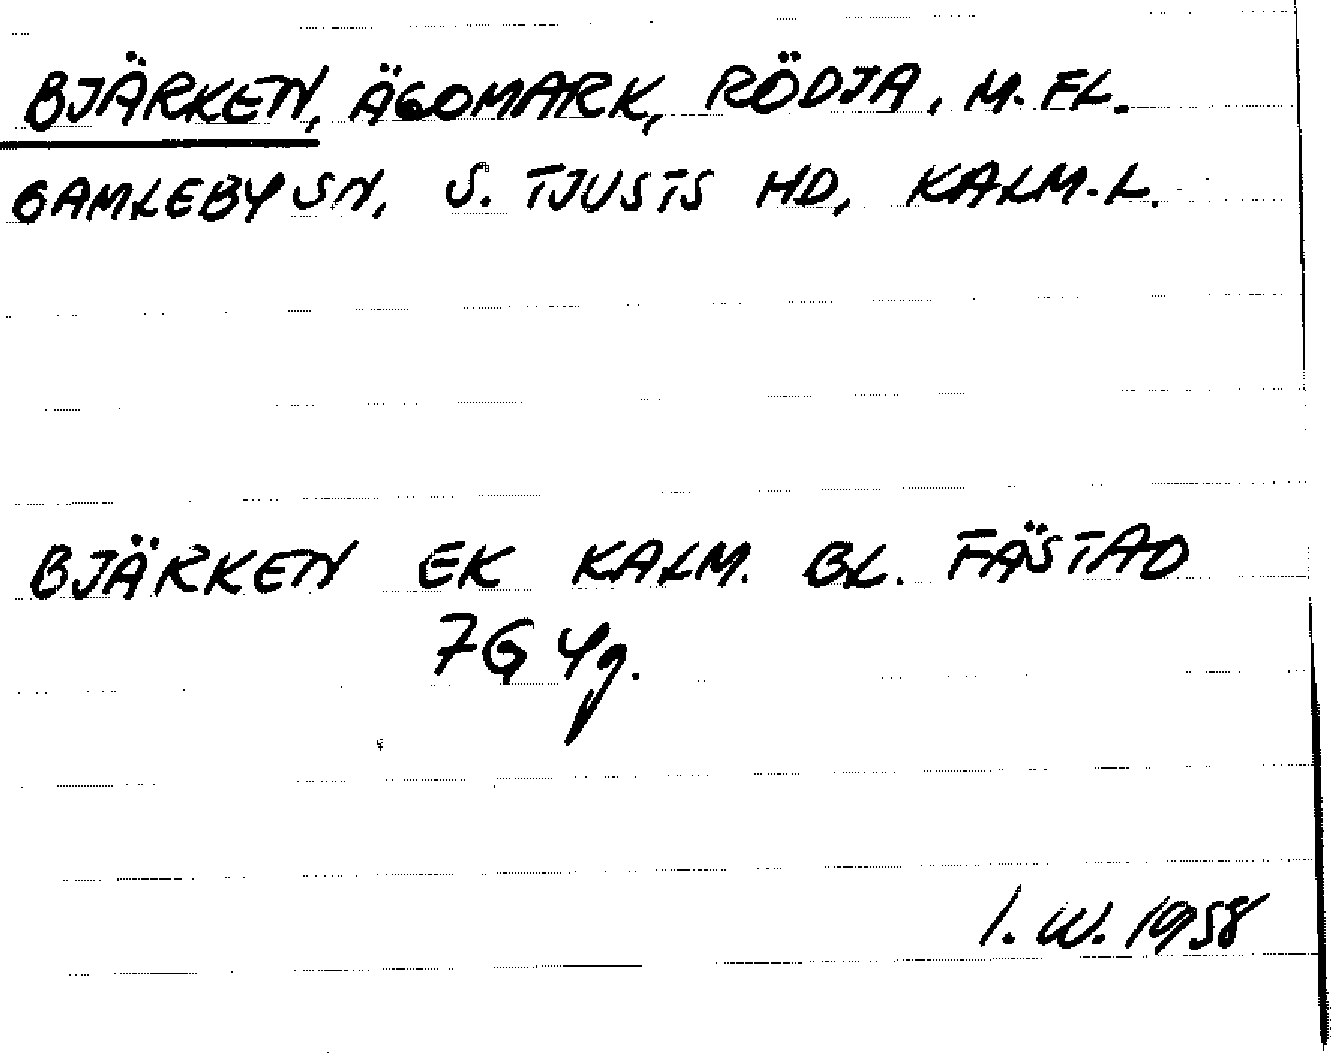 BJÄRKEN, ÄGOMARK, RÖDJA, M. FL.
GAMLEBY SN, S. TJUSTS HD, KALM-L.
BJÄRKEN EK KALM. BL. FÄSTAD
7G 4g.
I. W. 1958